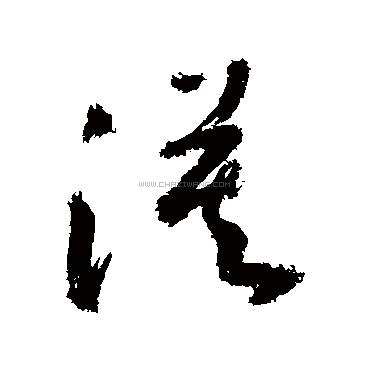 漢
WWW.CHAZIWANG.COM